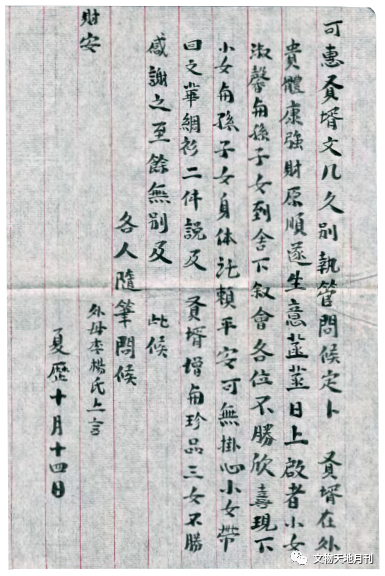 可惠贤壻文几久别執管問候定卜 贤壻在外
貴體康強財原順遂生意蓋蓋日上啟者小女
淑馨每孫子女到舍下叙會各位不勝欣喜現下
小女每孫子女身体託賴平安可無掛心小女帶
回之華綢衫二件説及 贤壻增每珍品三女不勝
感謝之至餘無别及 此候
財安
各人隨筆問候
外母李楊氏上言
夏歷十月十四日
文物天地月刊